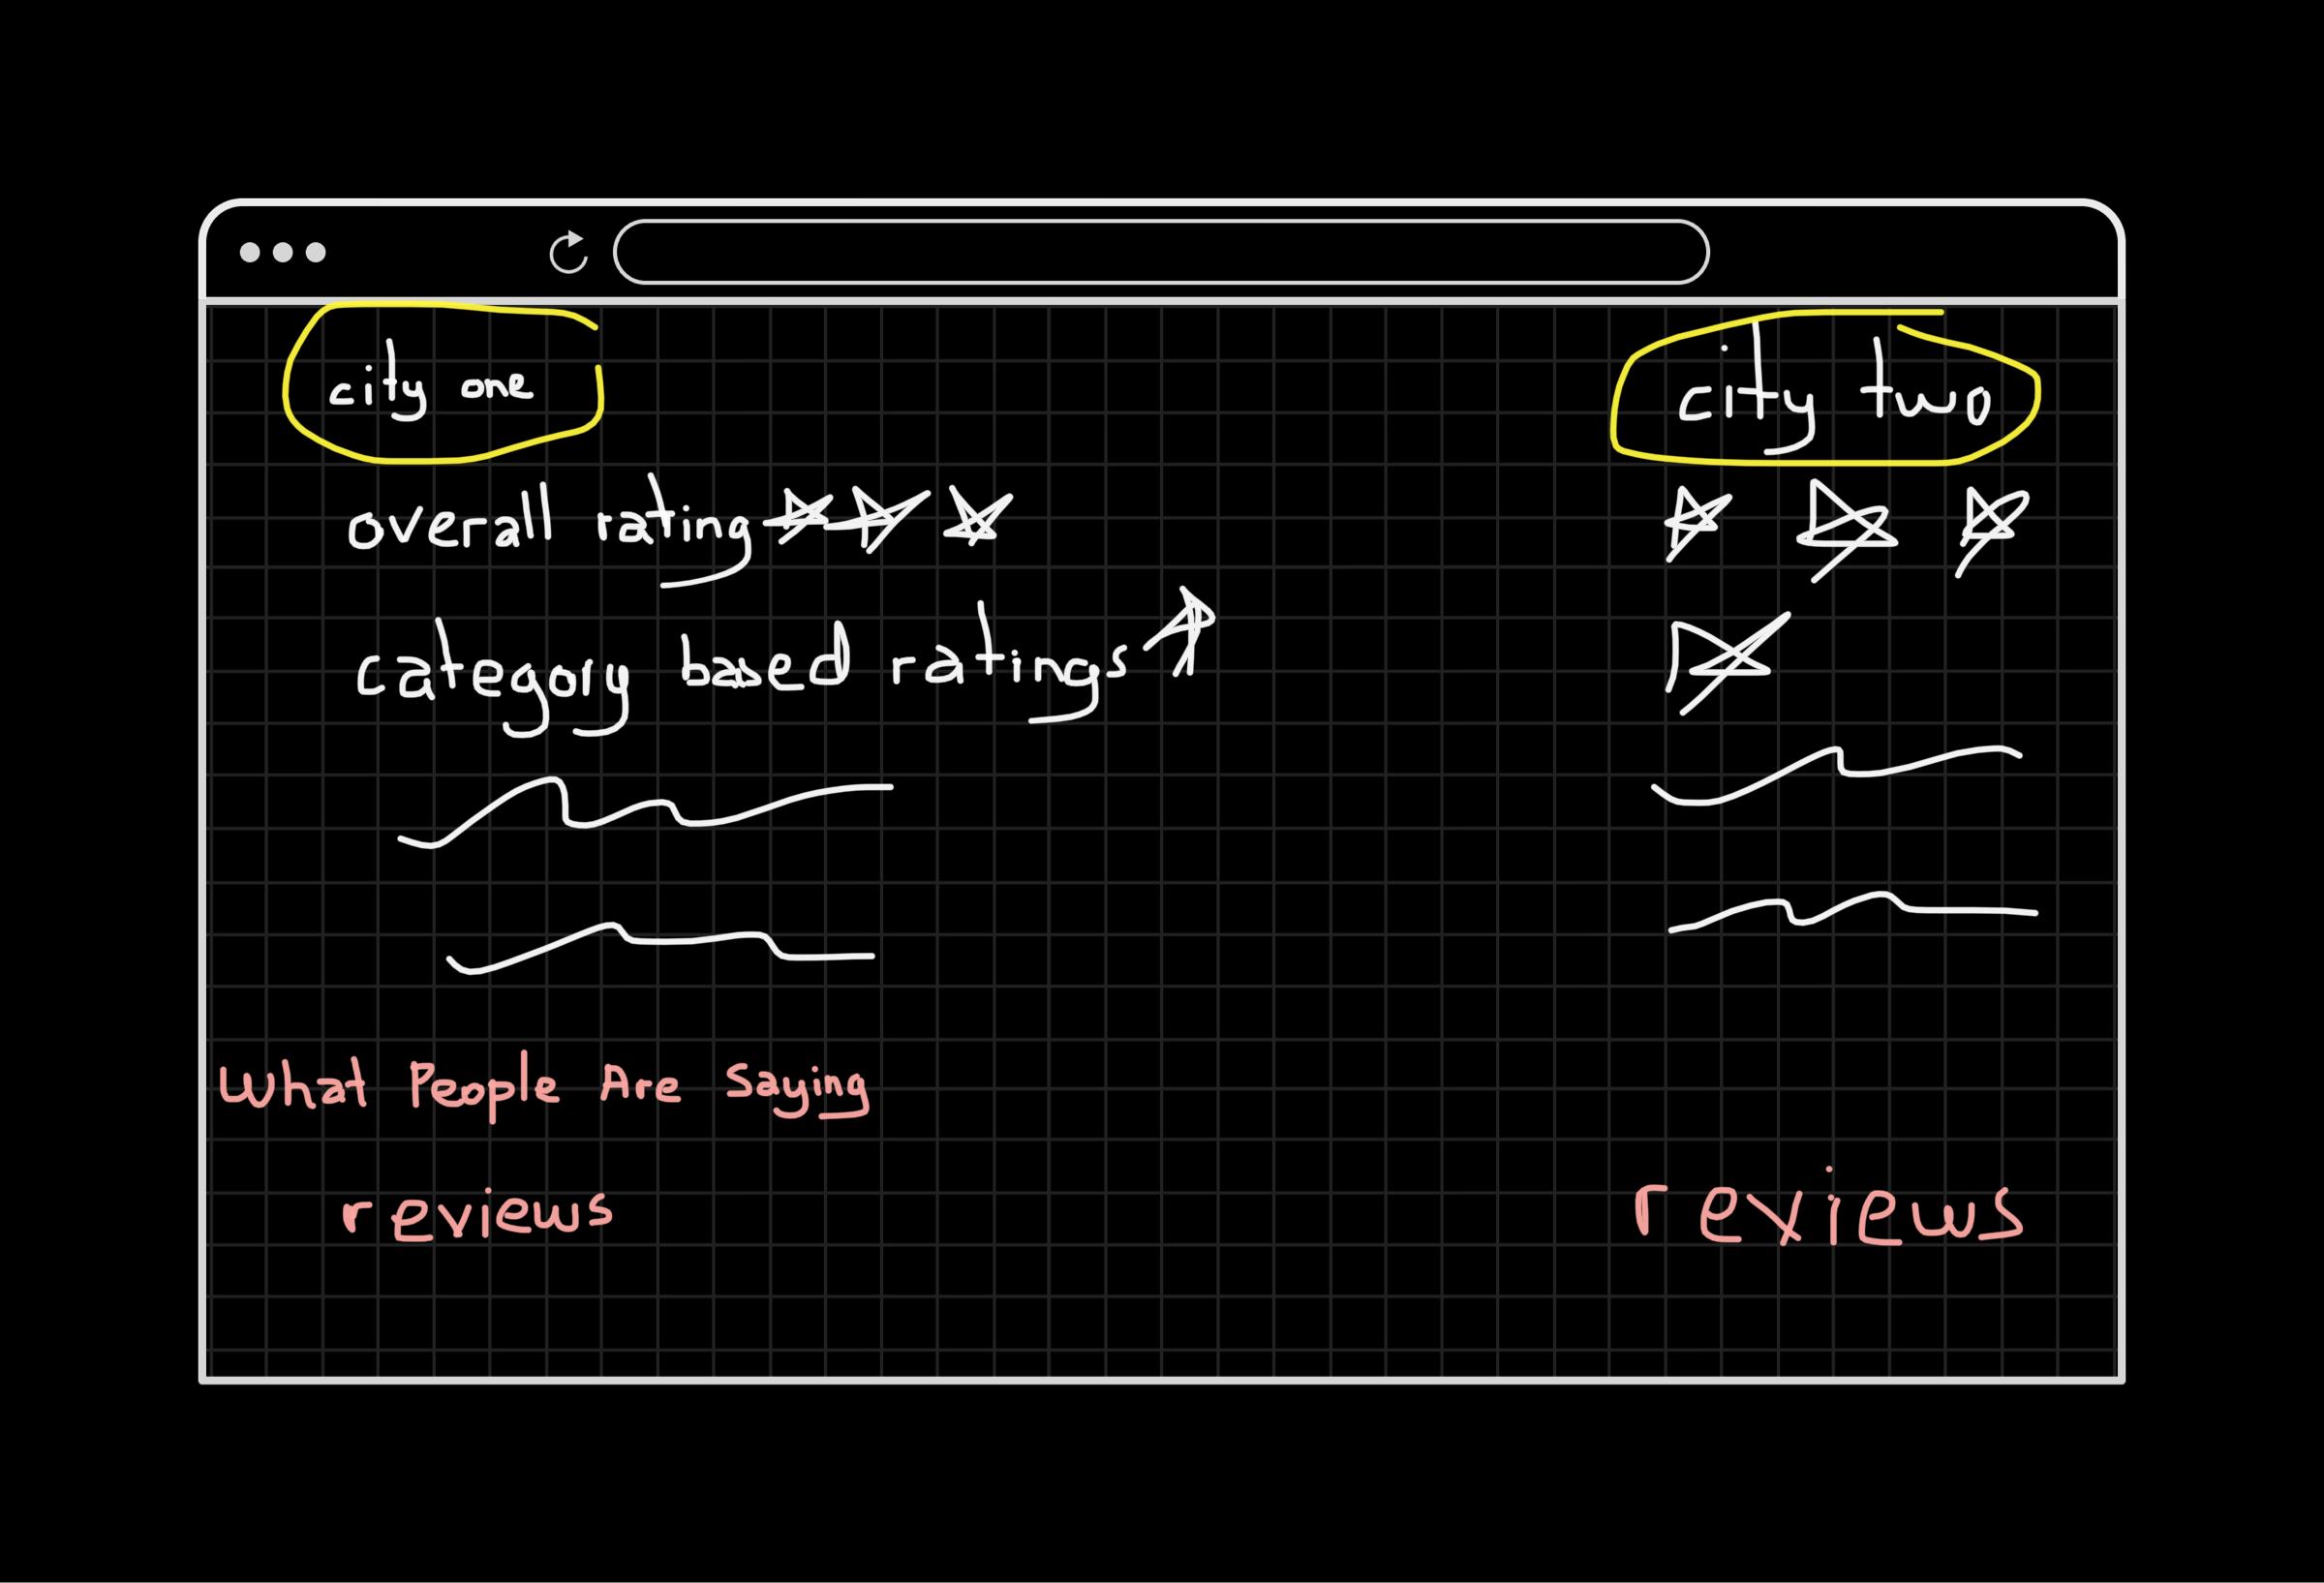 city one
city two
overall rating
category based ratings
What People Are Saying
reviews
reviews